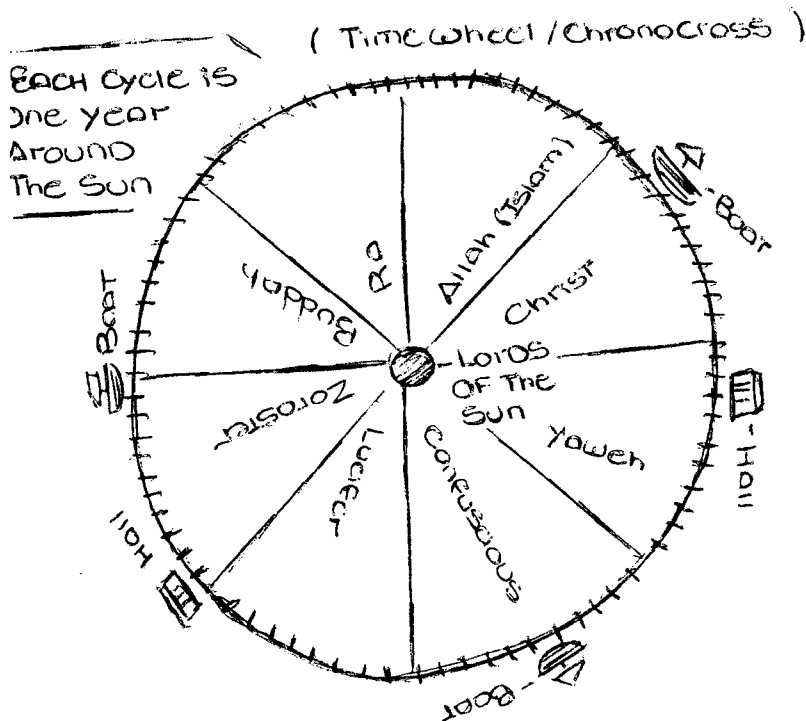 ( Timewheel / Chronocross )
EACH Cycle is
One year
Around
The Sun
Ra
Allah (Islam)
Christ
Yaweh
Confuscious
Lucifer
Zoroster
Buddah
- Lords
OF The
Sun
- Boat
- Hall
- Boat
Hall
- Boat